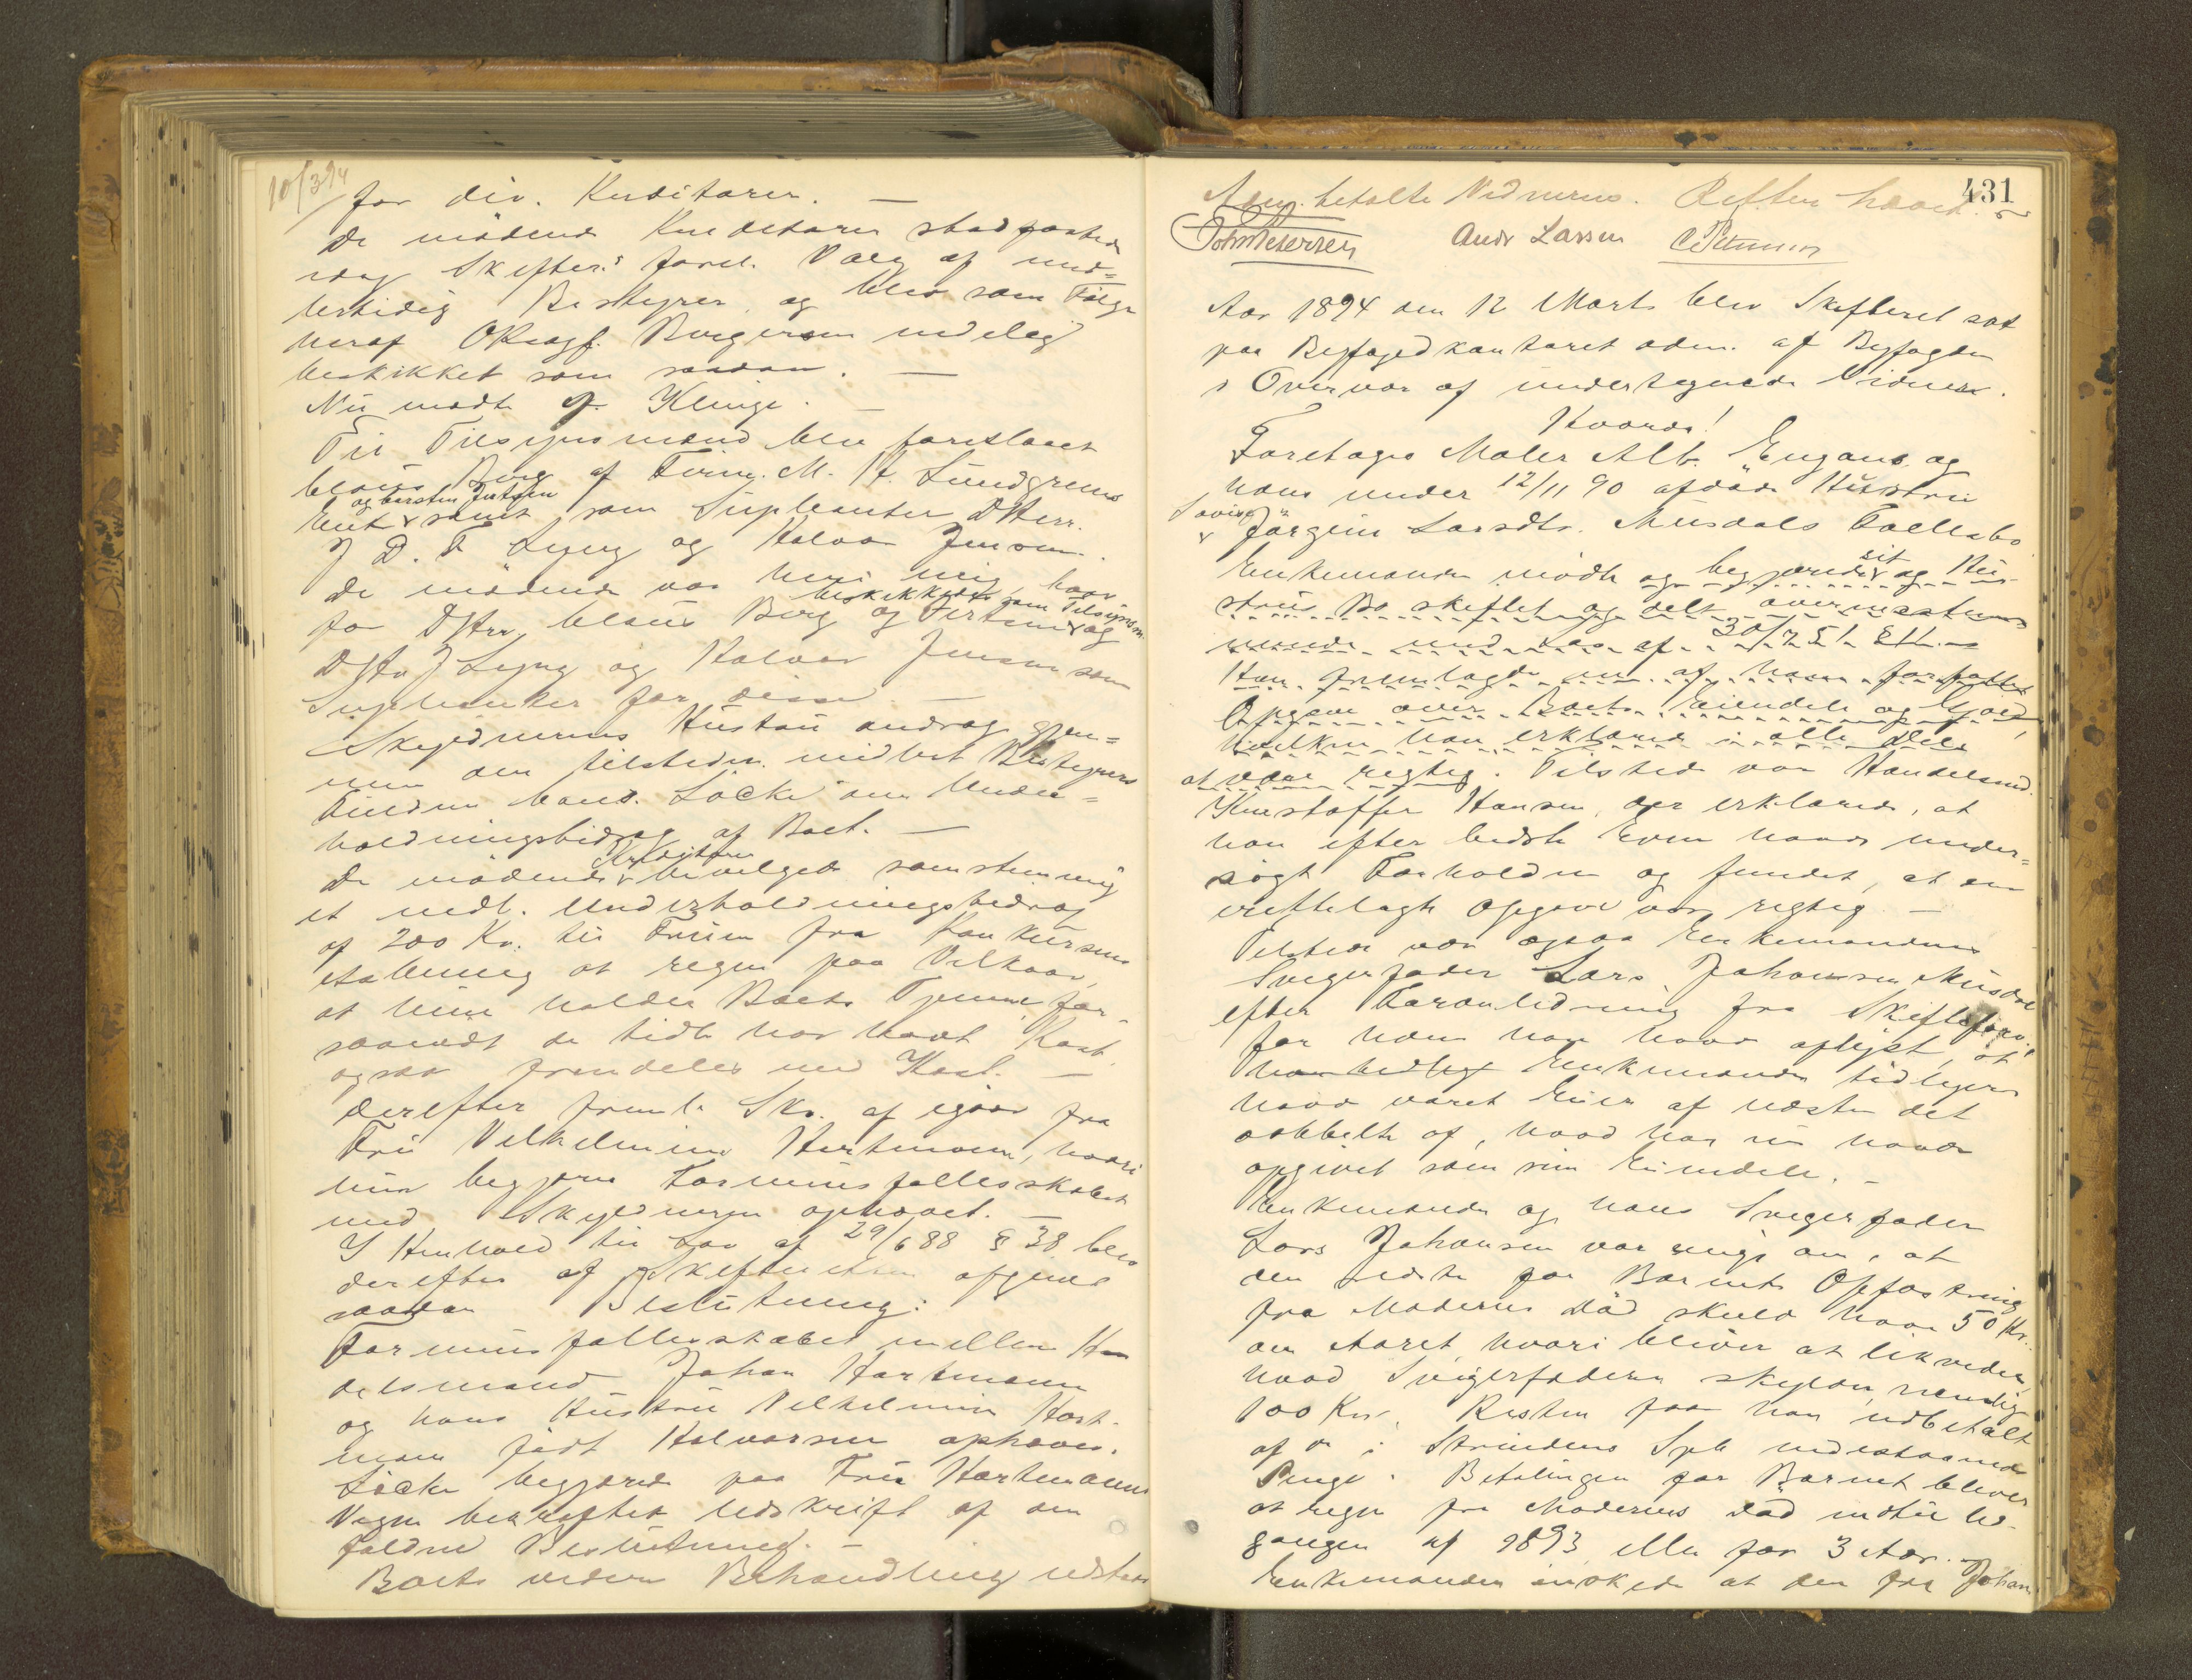 10/3 94
for div. Kreditorer. —
De mødende Kreditorer stadfæstede
idag Skifter.s forel. Valg af mid=
lertidig Bestyrer, og blev som Følge
heraf ORsagf. Borgersen endelig
beskikket som saadan. —
Nu mødte Klinge. —
Til Tilsynsmænd blev foreslaaet
Claus Berg af Firma M. H. Lundgrens
Enke samt som Suplenter DHrr.
J. D. F. Lysg og Halvor Jensen.
De mødende var heri enig, hvor
for DHrr. Claus Berg og beskikkedes som Tilsynsm. og
DHr. J Lysg og Halvor Jensen som
Suplenter for disse —
Skyldnerens Hustru androg gjen=
nem den tilstedev. midlert. Bestyrers
Løcke om Under=
holdningsbidrag af Boet. —
De mødende Kreditorer bevilgede samstemmig
et midl. Underholdningsbidrag
af 200 Kr. til Fruen fra Konkursens
Aabning at regne paa Vilkaar,
at hun holder Boets Tjenere for-
saavidt de tidl. har havt Kost
ogsaa fremdeles med Kost. —
Derefter freml. Skr. af igaar fra
Fru Vilhelmine Hartmann, hvori
hun begjærer Formuesfællesskabet
med Skyldneren ophævet. —
I Henhold til Lov af 29/6 88 § 38 blev
derefter af Skifteretten afgivet
saadan Beslutning:
Formuesfællesskabet mellem Han
delsmand Johan Hartmann
og hans Hustru Vilhelmine Hart-
mann født Halvorsen ophæves.
Løcke begjærede paa Fru Hartmanns
Vegne bekræftet Udskrift af den
faldne Beslutning. —
Boets videre Behandling udstaar
431
betalte Vidnerne. Retten hævet.
Joh Petersen Andr Larsen C Petersen
Aar 1894 den 12 Marts blev Skifteret sat
paa Byfogedkontoret adm. af Byfogden
i Overvær af undertegnede Vidner.
Hvorda!
Foretages Maler Alb. Engans og
hans under 12/11 90 afdøde Hustru
Lovise Jørgine Larsdtr. Musdals Fællesbo
Enkemanden mødte og begjærede sit og Hu-
strus Bo skiftet og delt overensstem-
mende med Lov af 30/7 51 § 11. —
Han fremlagde en af ham forfattet
Opgave over Boets Eiendele og Gjæld,
hvilken han erklærede i alle Dele
at være rigtig. Tilstede var Handelsmd.
Kristoffer Hansen, der erklærede, at
han efter bedste Evne havde under=
søgt Forholdene og fundet, at den
irettelagte Opgave var rigtig —
Tilstede var ogsaa Enkemandens
Svigerfader Lars Johansen Musdal
efter Foranledning fra Skifteforv.,
for hvem han havde oplyst, at
Enkemanden tidligere
havde været Eier af næsten det
dobbelte af, hvad han nu havde
opgivet som sin Eiendele. —
Enkemanden og hans Svigerfader
Lars Johansen var enige om, at
den sidste for Barnets Opfostring
fra Moderens Død skulde have 50 Kr.
om Aaret, hvori bliver at likvidere
hvad Svigerfaderen skylder, nemlig
100 Kr. Resten faar han udbetalt
af de i Strindens Spb indestaaende
Penge. Betalingen for Barnet bliver
at regne fra Moderens Død indtil Ud-
gangen af 1893 eller for 3 Aar. —
Enkemanden ønskede at den fra Johan